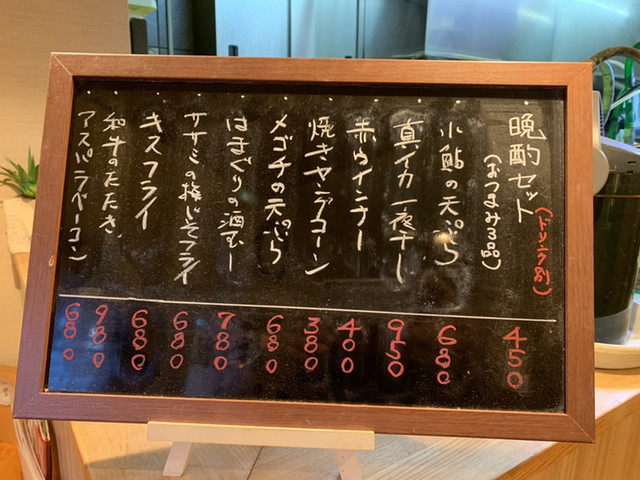 晩酌セット
(おつまみ3品)
(ドリンク別)
450
小鮎の天ぷら
680
真イカ一夜干し
950
赤ウインナー
400
焼きヤングコーン
380
メゴチの天ぷら
680
はまぐりの酒蒸し
780
ササミの梅じそフライ
680
キスフライ
680
和牛のたたき
980
アスパラベーコン
680